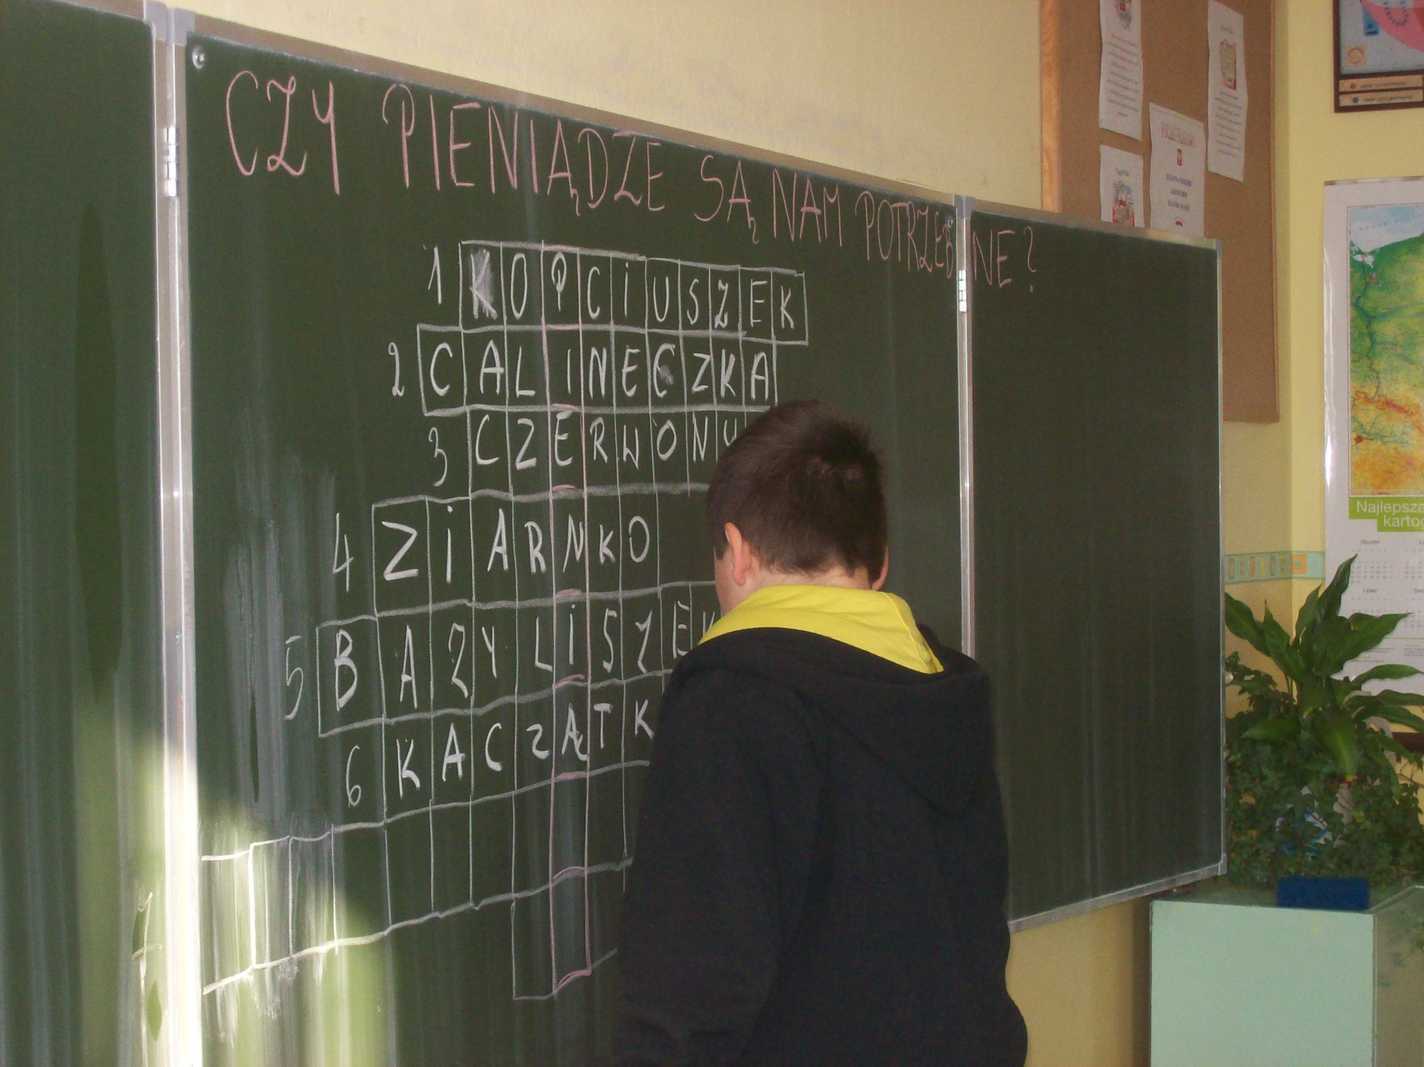 CZY PIENIĄDZE SĄ NAM POTRZEBNE?
1 KOPCIUSZEK
2 CALINECZKA
3 CZERWONY
4 ZIARNKO
5 BAZYLISZEK
6 KACZĄTK
Najlepsze
karto